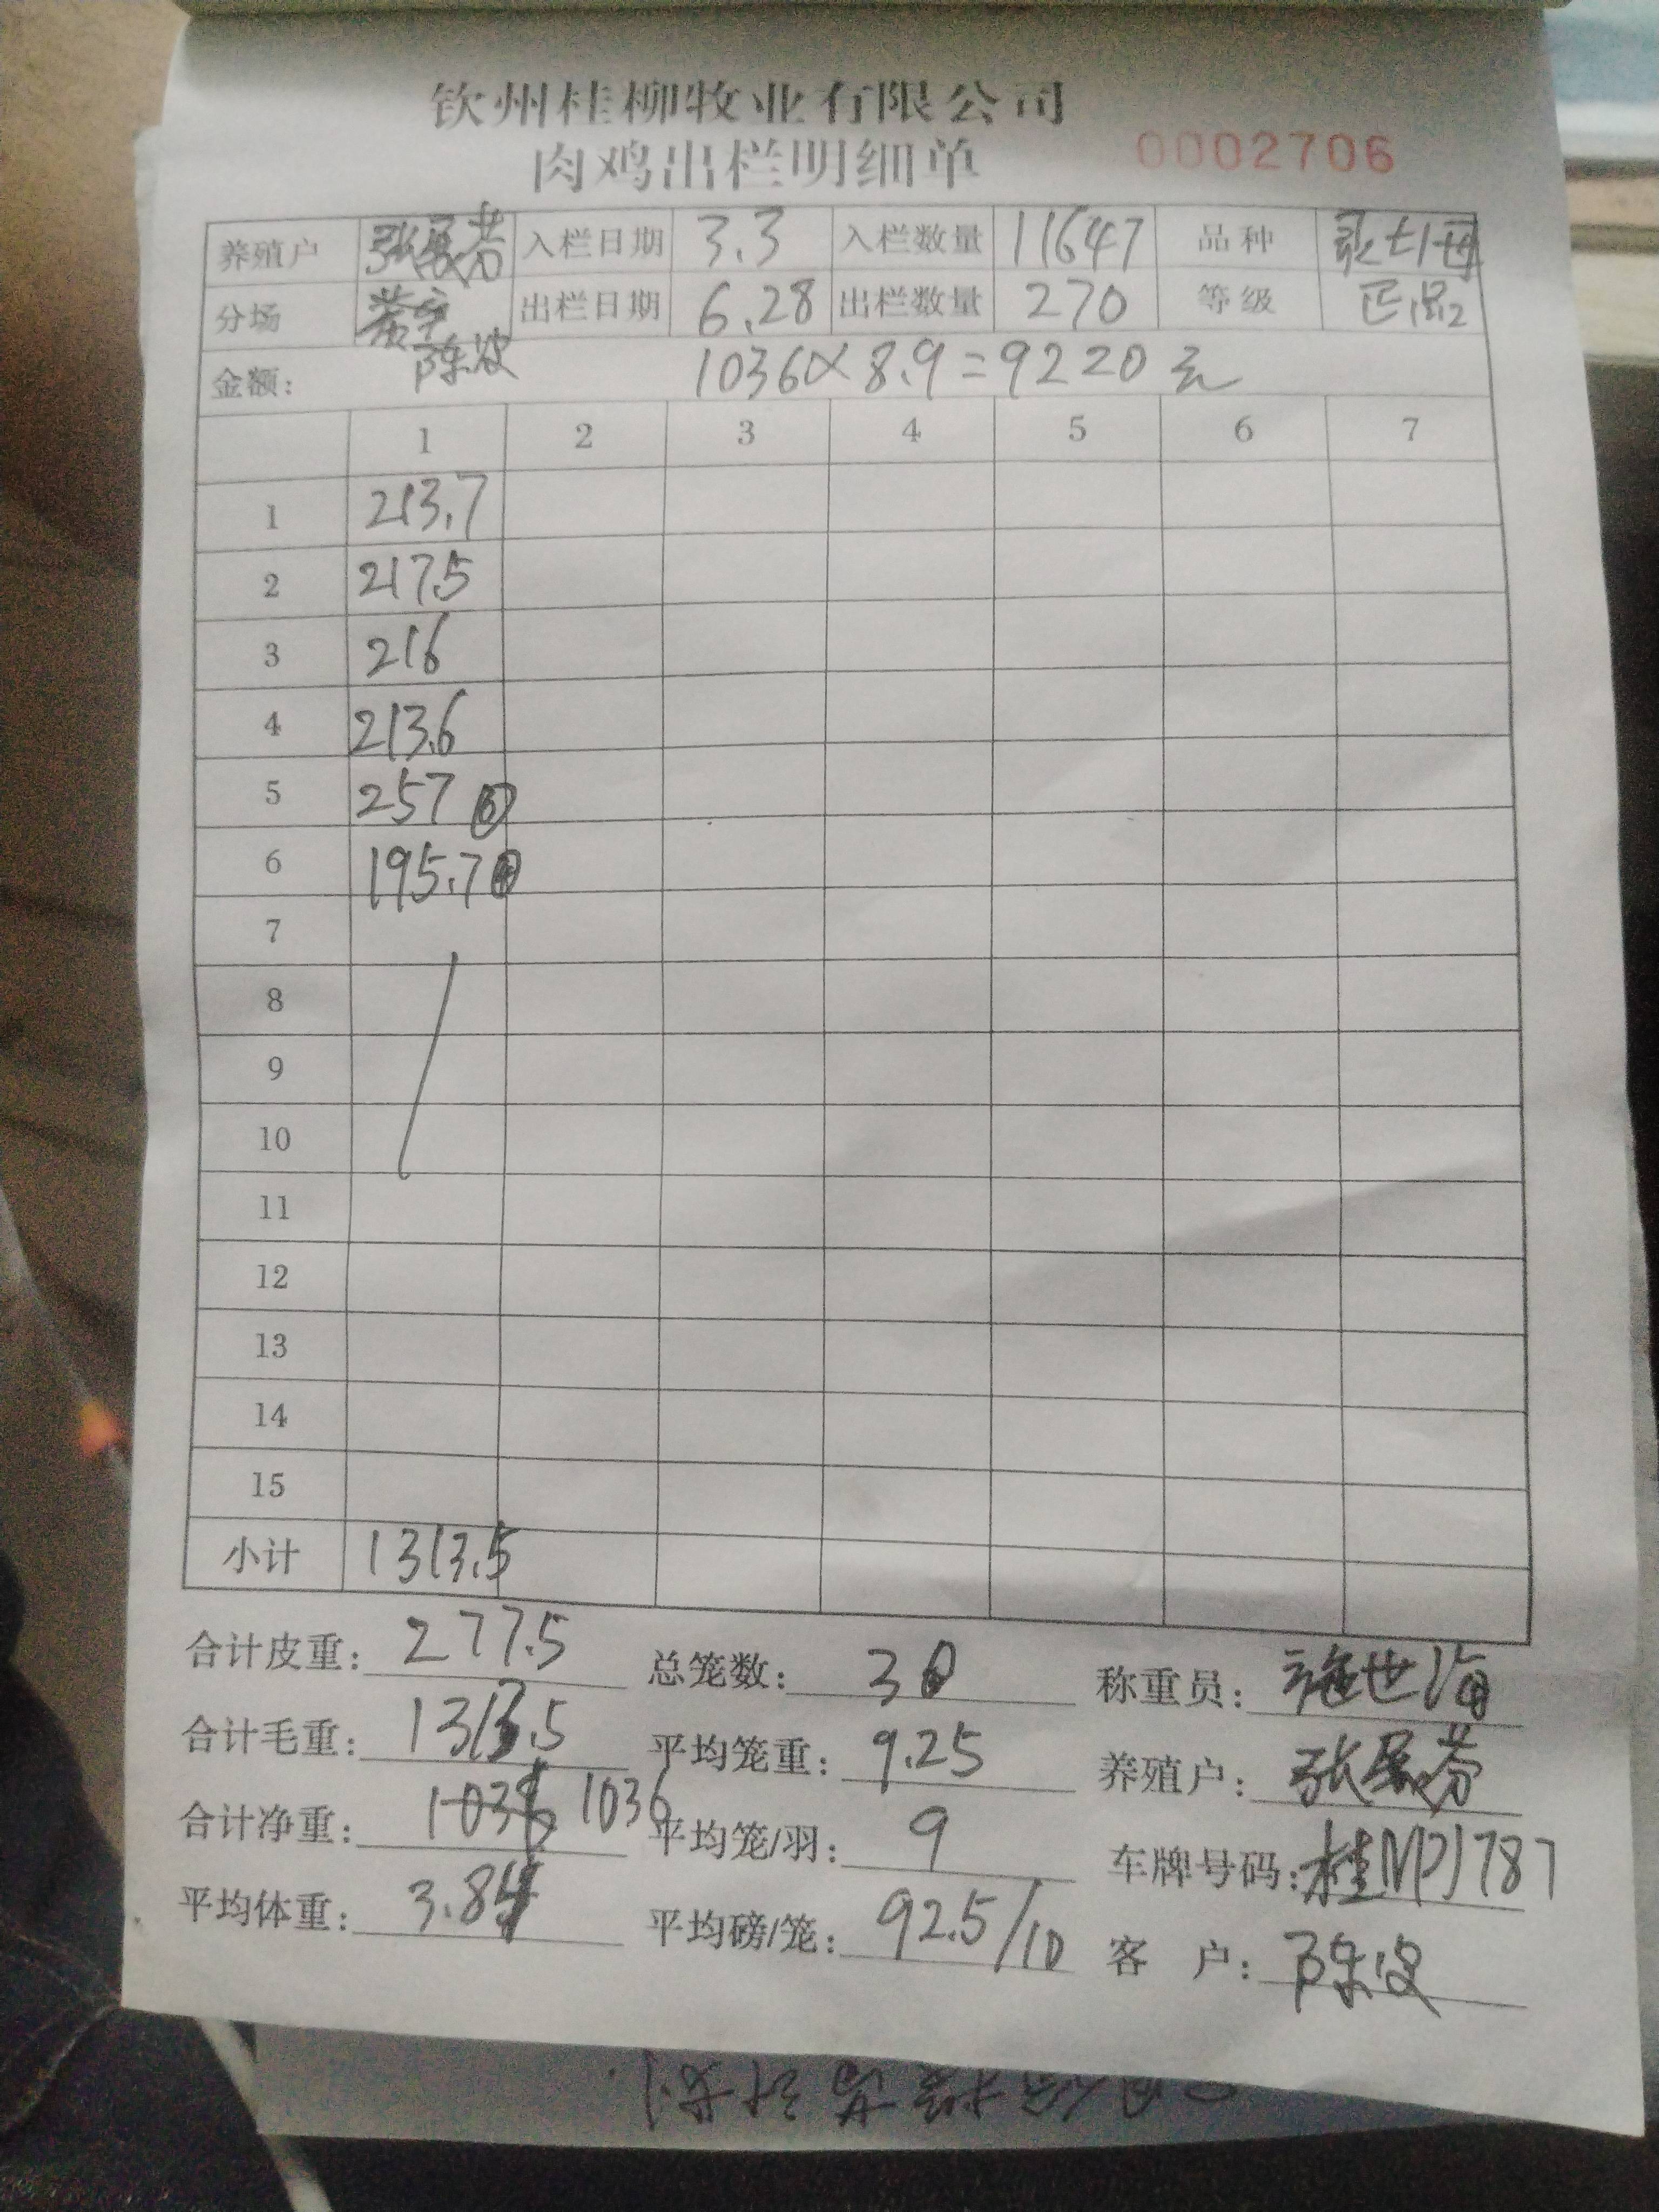 钦州桂柳牧业有限公司
肉鸡出栏明细单 0002706
养殖户 张展芬 入栏日期 3.3 入栏数量 11647 品种
分场 出栏日期 6.28 出栏数量 270 等级 正品2
金额: 陈波 1036×8.9=9220元
1 2 3 4 5 6 7
1 213.7
2 217.5
3 216
4 213.6
5 257 ⑥
6 195.7
7
8
9
10
11
12
13
14
15
小计 1313.5
合计皮重: 277.5 总笼数: 30 称重员: 施世海
合计毛重: 1313.5 平均笼重: 9.25 养殖户: 张展芬
合计净重: 1036 平均笼/羽: 9 车牌号码: 桂NP1787
平均体重: 3.84 平均磅/笼: 92.5/10 客 户: 陈波